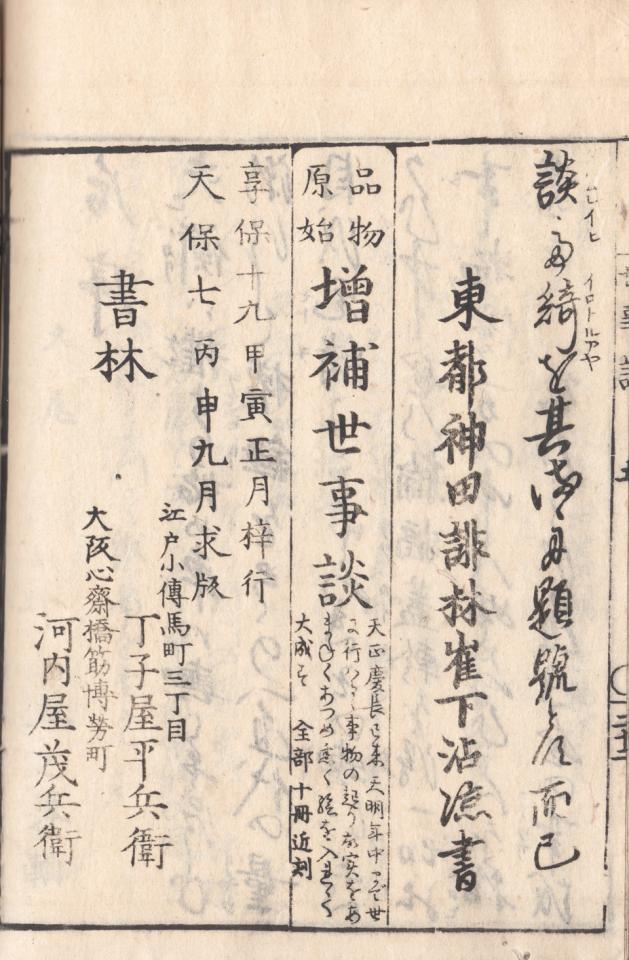 談
綺を其儘
題號とし而已
セイヒ
イロトルアヤ
東都神田誹林崔下沾凉書
品物
原始
増補世事談
天正慶長已来天明年中まで世
に行はるゝ事物の起り故実をあ
まねくあつめ悉く絵を入れくく
大成す 全部十冊近刻
享保十九甲寅正月梓行
天保七丙申九月求版
書林
江戸小傳馬町三丁目
丁子屋平兵衛
大阪心齋橋筋博労町
河内屋茂兵衛